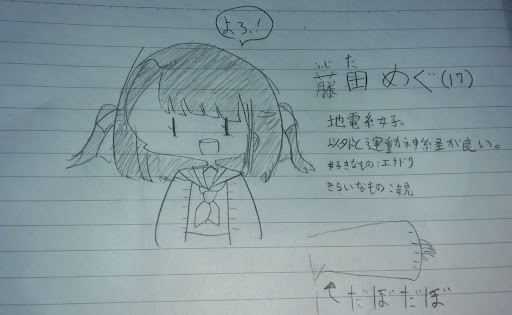 よろ!
ふじた
藤田 めぐ(17)
地電系女子。
以外と運動神経が良い。
好きなもの:エナドリ
きらいなもの:親
だぼだぼ